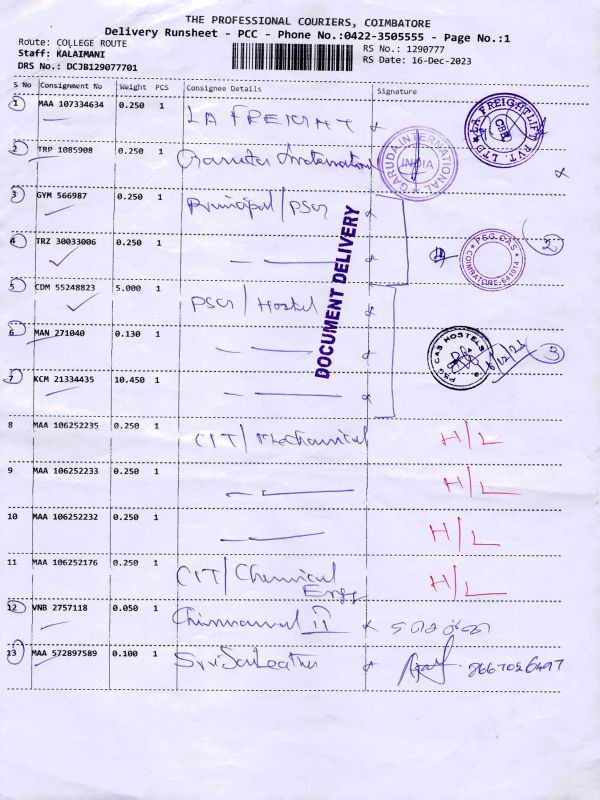 THE PROFESSIONAL COURIERS, COIMBATORE
Delivery Runsheet - PCC - Phone No.:0422-3505555 - Page No.:1
Route: COLLEGE ROUTE
Staff: KALAIMANI
DRS No.: DCJB129077701
RS No.: 1290777
RS Date: 16-Dec-2023
S No Consignment No Weight PCS Consignee Details Signature
1 MAA 107334634 0.250 1 LA FREIGHT
LA FREIGHTLIFT PVT. LTD
2 TRP 1085908 0.250 1 Garuda International
GARUDA INTERNATIONAL
INDIA
3 GYM 566987 0.250 1 Principal / PSG
DOCUMENT DELIVERY
4 TRZ 30033006 0.250 1 — —
PSG CAS
COIMBATORE-641014
2
5 CDM 55248823 5.000 1 PSG / Hostel
6 MAN 271040 0.130 1 — —
PSG CAS HOSTELS
3
7 KCM 21334435 10.450 1 — —
8 MAA 106252235 0.250 1 CIT / Mechanical H/L
9 MAA 106252233 0.250 1 — — H/L
10 MAA 106252232 0.250 1 — — H/L
11 MAA 106252176 0.250 1 CIT / Chemical Engg H/L
12 VNB 2757118 0.050 1
13 MAA 572897589 0.100 1 Sri Sai Leather